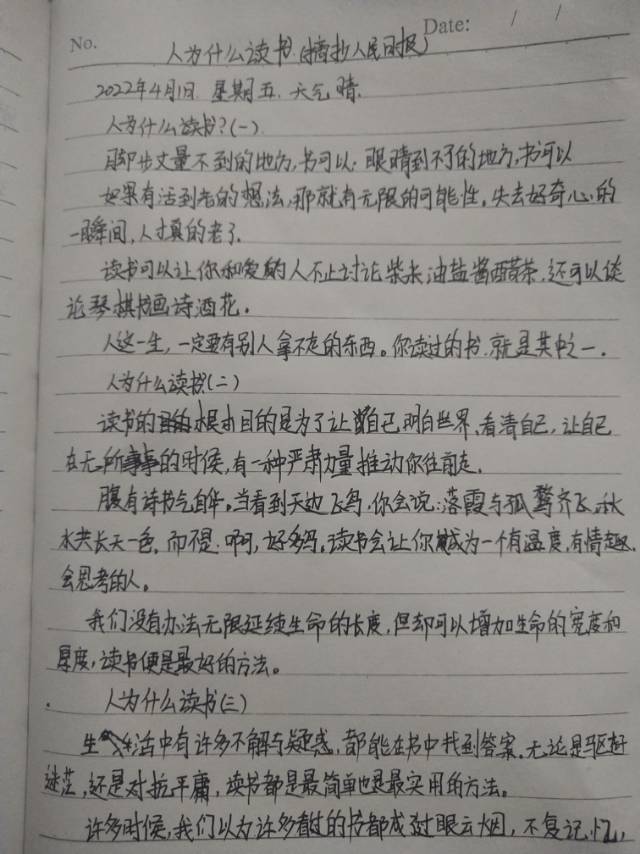 No.
Date: / /
人为什么读书(摘抄人民日报)
2022年4月1日 星期五 天气晴.
人为什么读书?(一)
脚步丈量不到的地方,书可以.眼睛到不了的地方,书可以
如果有活到老的想法,那就有无限的可能性。失去好奇心的
一瞬间,人才真的老了.
读书可以让你和爱的人不止讨论柴米油盐酱醋茶,还可以谈
论琴棋书画诗酒花.
人这一生,一定要有别人拿不走的东西。你读过的书,就是其中之一.
人为什么读书(二)
读书的根本目的是为了让自己明白世界,看清自己,让自己
在无所事事的时候,有一种严肃力量推动你往前走.
腹有诗书气自华。当看到天边飞鸟,你会说:落霞与孤鹜齐飞,秋
水共长天一色,而不是:啊,好多鸟。读书会让你成为一个有温度,有情趣,
会思考的人。
我们没有办法无限延续生命的长度,但却可以增加生命的宽度和
厚度,读书便是最好的方法。
人为什么读书(三)
生活中有许多不解与疑惑,都能在书中找到答案.无论是驱赶
迷茫,还是对抗平庸,读书都是最简单也是最实用的方法。
许多时候,我们以为许多看过的书都成过眼云烟,不复记忆,